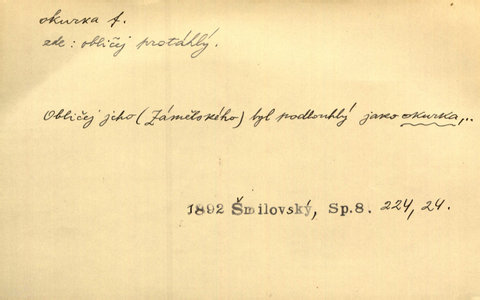 okurka f.
zde: obličej protáhlý.
Obličej jeho (Zámětského) byl podlouhlý jako okurka,..
1892 Šmilovský, Sp.8. 224, 24.